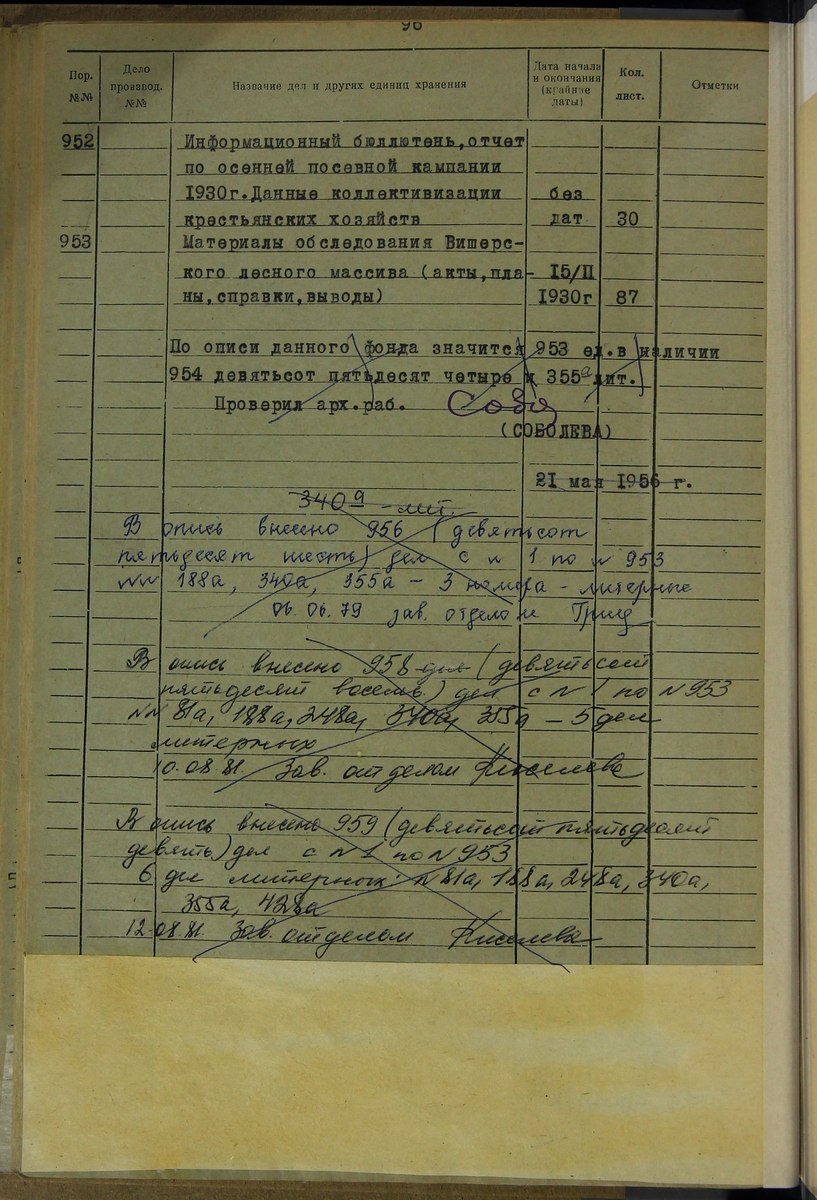 96
Пор. №№
Дело производ. №№
Название дел и других единиц хранения
Дата начала и окончания (крайние даты)
Кол. лист.
Отметки
952 Информационный бюллютень,отчет
по осенней посевной кампании
1930г.Данные коллективизации без
крестьянских хозяйств дат 30
953 Материалы обследования Вишерс-
кого лесного массива (акты,пла- 15/II
ны,справки,выводы) 1930г 87
По описи данного фонда значится 953 ед.в наличии
954 девятьсот пятьдесят четыре и 355а лит.
Проверил арх.раб.
(СОБОЛЕВА)
21 мая 1956 г.
340а - лит.
В опись внесено 956 (девятьсот
пятьдесят шесть) дел с № 1 по № 953
№№ 188а, 340а, 355а - 3 номера - литерные
06.06.79 зав. отделом
В опись внесено 958 дел (девятьсот
пятьдесят восемь) дел с № 1 по № 953
№№ 81а, 188а, 248а, 340а, 355а - 5 дел
литерных
10.08.81. Зав. отделом Киселева
В опись внесено 959 (девятьсот пятьдесят
девять) дел с № 1 по № 953
6 дел литерных: № 81а, 188а, 248а, 340а,
355а, 428а
12.08.81 Зав. отделом Киселева